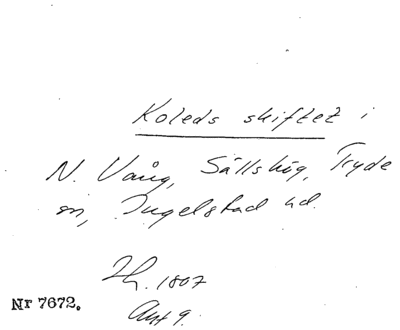 Koleds skiftet i
N. Vång, Sällshög, Tryde
sn, Ingelstad hd.
Zh. 1807
Akt 9.
Nr 7672.